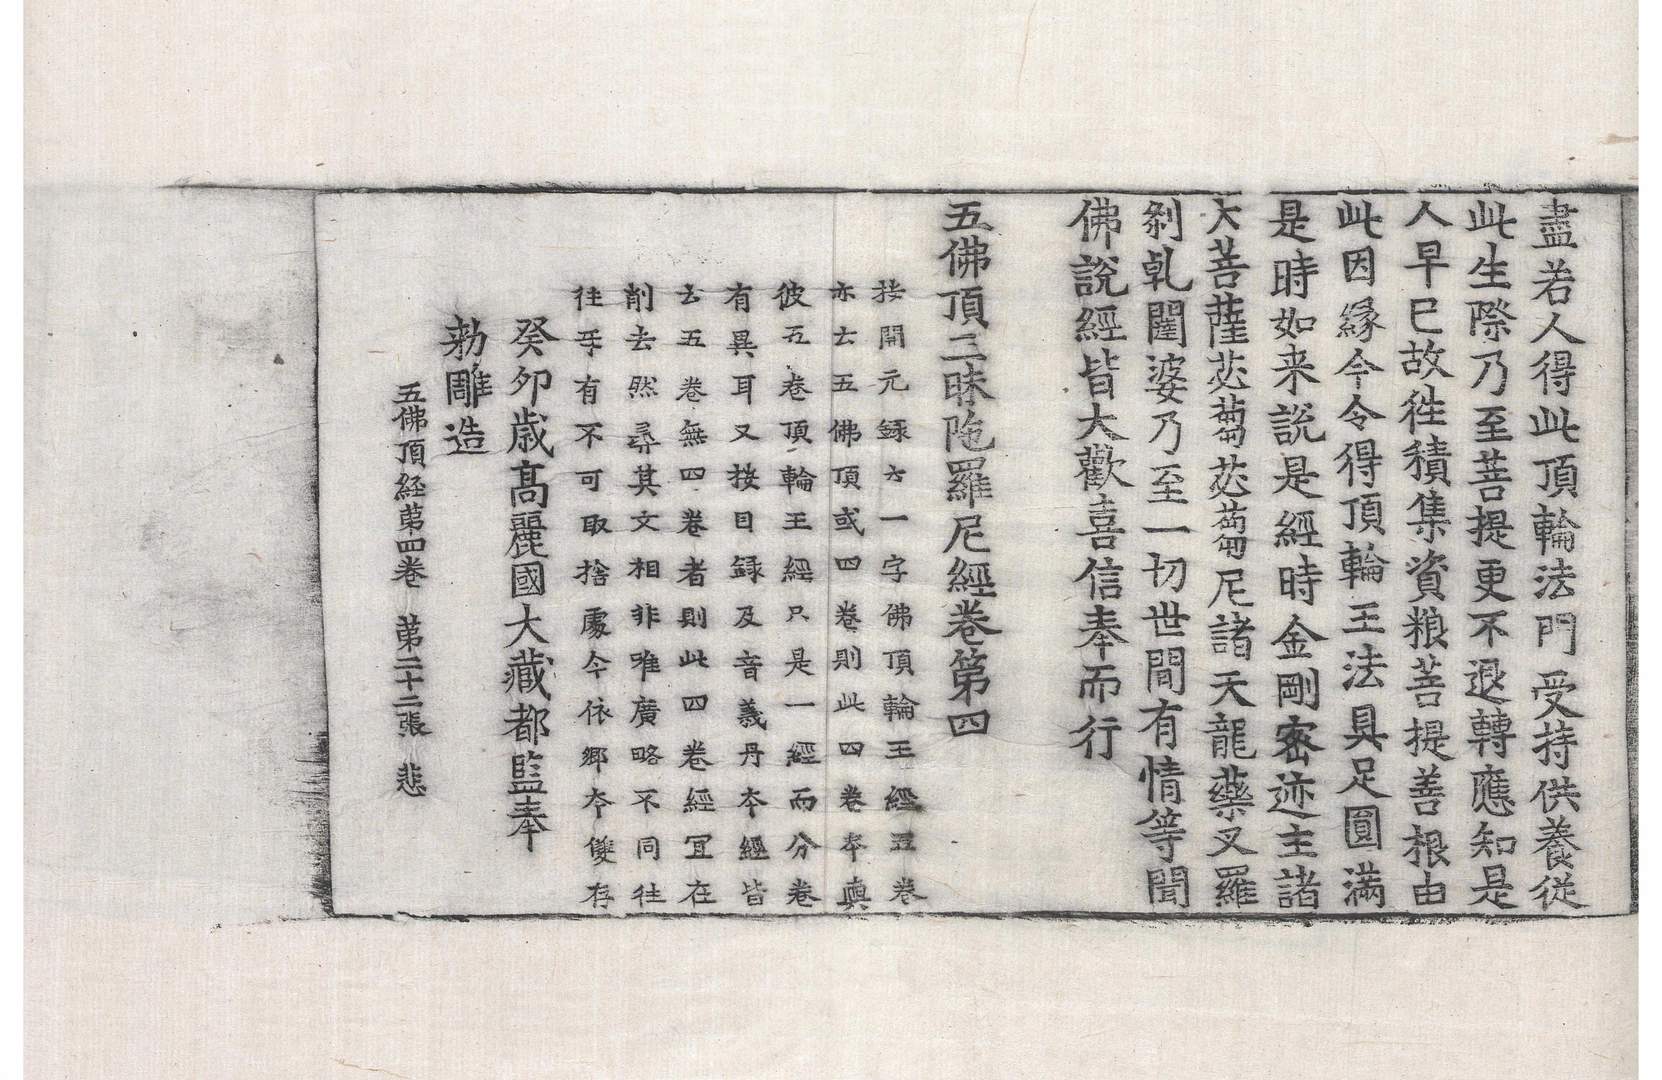 盡若人得此頂輪法門受持供養從
此生際乃至菩提更不退轉應知是
人早已故徃積集資粮菩提善根由
此因緣今令得頂輪王法具足圓滿
是時如来說是經時金剛密迹主諸
大菩薩苾蒭苾蒭尼諸天龍藥叉羅
剎乹闥婆乃至一切世間有情等聞
佛說經皆大歡喜信奉而行
五佛頂三昧陁羅尼經卷第四
按開元録六一字佛頂輪王經五卷
亦云五佛頂或四卷則此四卷夲與
彼五卷頂輪王經只是一經而分卷
有異耳又按目録及音義丹夲經皆
云五卷無四卷者則此四卷經冝在
削去然尋其文相非唯廣略不同往
往互有不可取捨處今依鄉夲雙存
癸夘歳髙麗國大藏都監奉
勅雕造
五佛頂経苐四卷　苐二十二張　悲